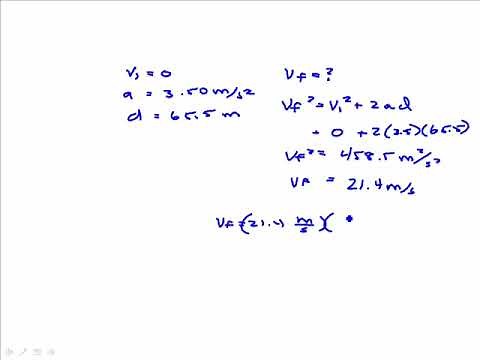 v₁ = 0
a = 3.50 m/s2
d = 65.5 m
Vf = ?
Vf² = V₁² + 2ad
= 0 + 2(3.5)(65.5)
Vf² = 458.5 m²/s²
Vf = 21.4 m/s
Vf = (21.4 m/s)(